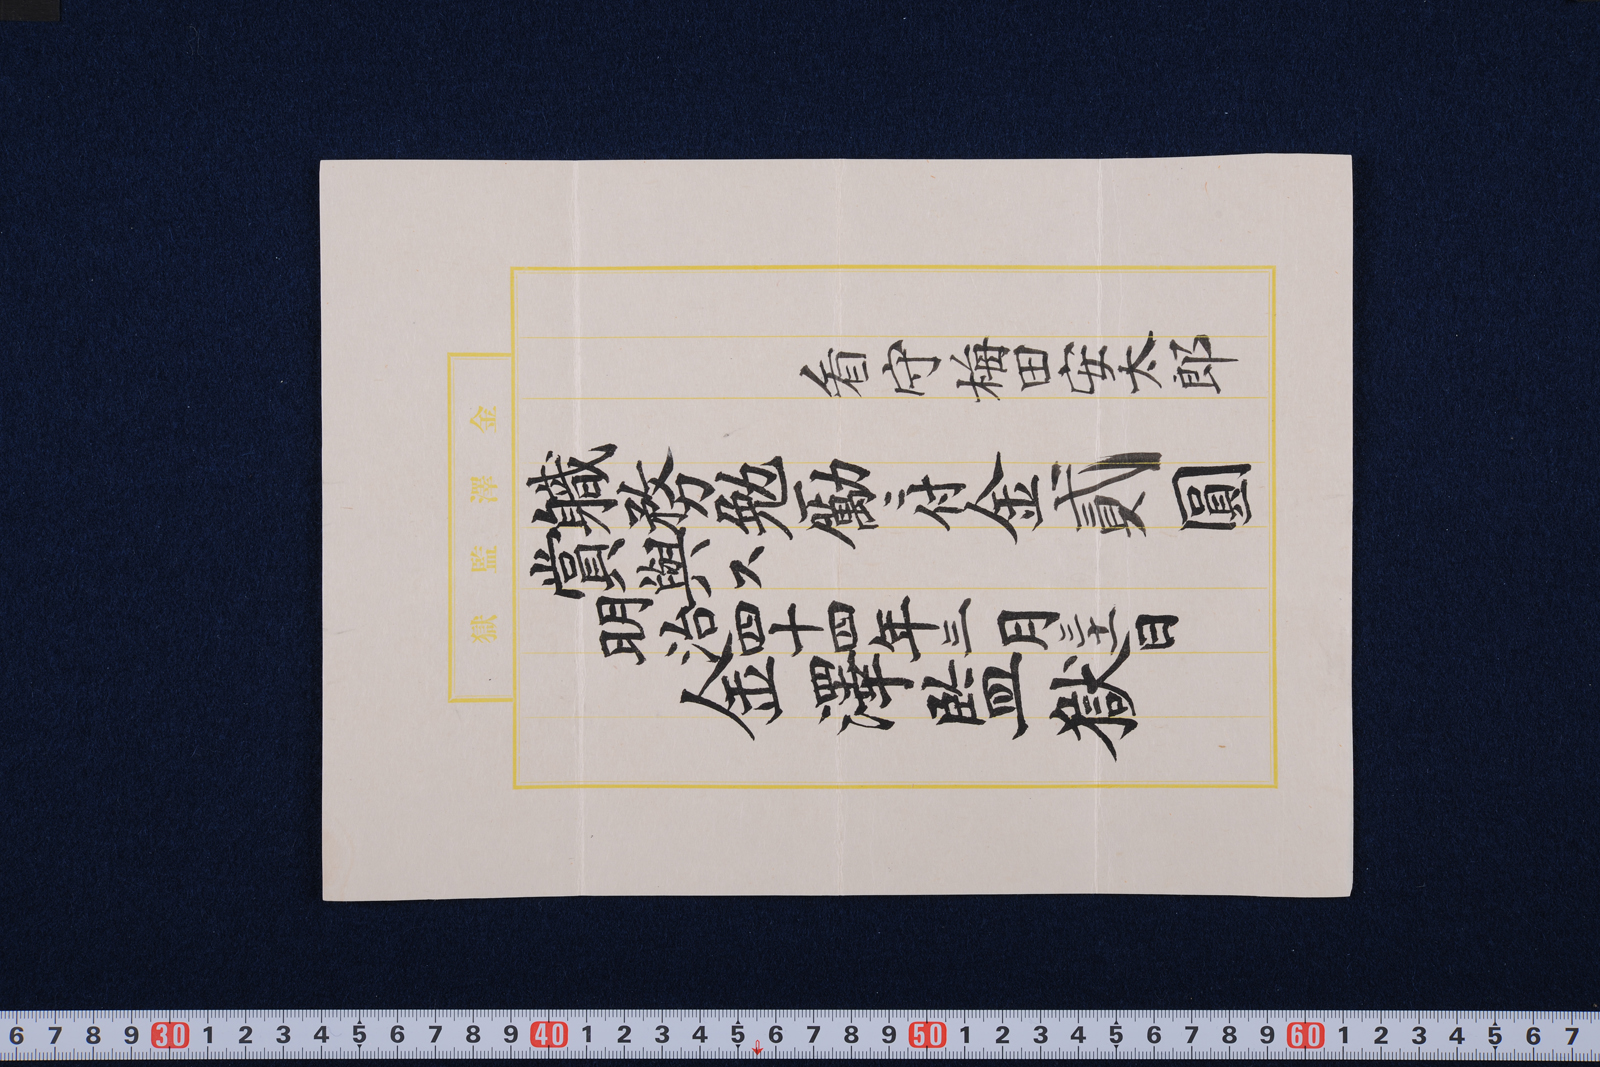 看守梅田安太郎
職務勉勵ニ付金貳圓
賞與ス
明治四十四年三月三十一日
金澤監獄
金澤監獄
6 7 8 9 30 1 2 3 4 5 6 7 8 9 40 1 2 3 4 5 6 7 8 9 50 1 2 3 4 5 6 7 8 9 60 1 2 3 4 5 6 7